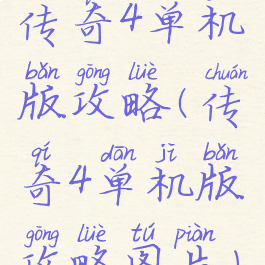 传奇4单机
bǎn gōng lüè chuán
版攻略(传
qí dān jī bǎn
奇4单机版
gōng lüè tú piàn
攻略图片)